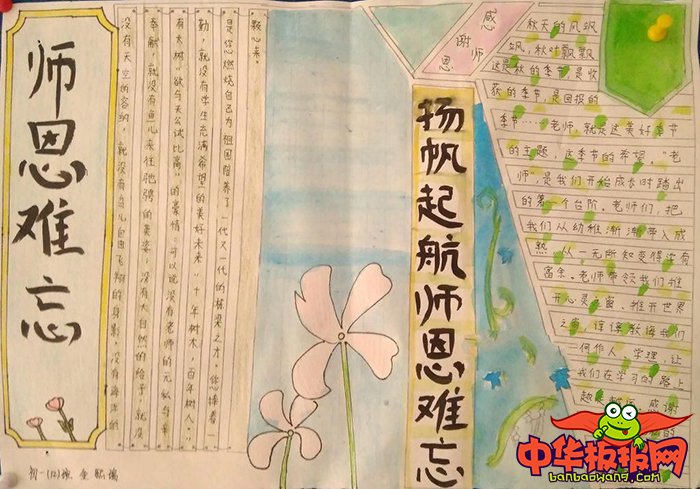 师恩难忘
没有天空的容纳，就没有鸟儿自由飞翔的身影，没有海洋的
奉献，就没有鱼儿来往驰骋的英姿，没有大自然的给予，就没
有大树“欲与天公试比高”的豪情，可以说没有老师的无私与辛
勤，就没有学生充满希望的美好未来“十年树木，百年树人”
是你燃烧自己为祖国培养了一代又一代的栋梁之才。你捧着一
颗心来。
初一(12)班
感
谢师
恩
扬帆起航师恩难忘
秋天的风飒
飒，秋叶飘飘
这是秋的季节，是收
获的季节，是回报的
季节……“老师”就是这美好季节
的主题，这季节的希望。“老
师”，是我们开始成长时踏出
的第一个台阶。老师们，把
我们从幼稚渐渐带入成
熟，从一无所知变得学有
富余。老师带领我们推
开心灵之窗，推开世界
之窗，谆谆教诲我们
何作人、学理，让
我们在学习的路上
感谢
中华板报网
banbaowang.com